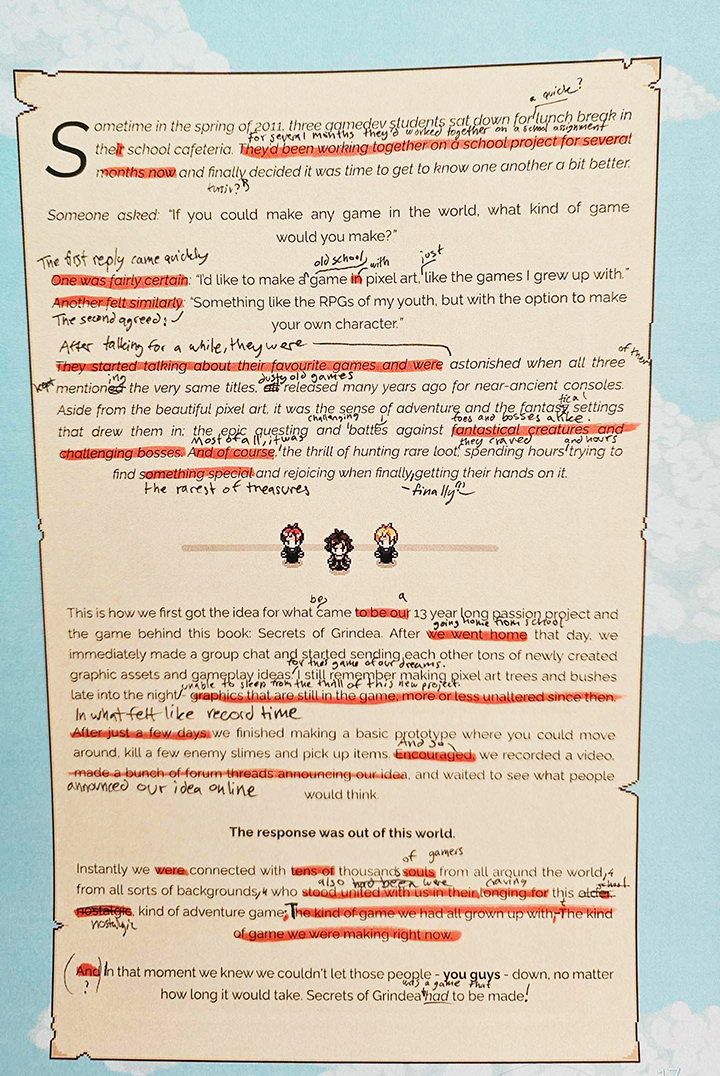 a quick?
Sometime in the spring of 2011, three gamedev students sat down for lunch break in
for several months they'd worked together on a school assignment
their school cafeteria. They'd been working together on a school project for several
months now and finally decided it was time to get to know one another a bit better.
Someone asked: "If you could make any game in the world, what kind of game
would you make?"
The first reply came quickly
old school with just
One was fairly certain: "I'd like to make a game in pixel art, like the games I grew up with."
Another felt similarly: "Something like the RPGs of my youth, but with the option to make
The second agreed:
your own character."
After talking for a while, they were
of their
They started talking about their favourite games and were astonished when all three
kept mentioned ing the very same titles, dusty old games released many years ago for near-ancient consoles.
Aside from the beautiful pixel art, it was the sense of adventure and the fantasy tical settings
challenging foes and bosses alike.
that drew them in; the epic questing and battles against fantastical creatures and
Most of all, it was they craved and hours
challenging bosses. And of course, the thrill of hunting rare loot, spending hours trying to
find something special and rejoicing when finally getting their hands on it.
the rarest of treasures -finally-
be a
This is how we first got the idea for what came to be our 13 year long passion project and
going home from school
the game behind this book: Secrets of Grindea. After we went home that day, we
immediately made a group chat and started sending each other tons of newly created
for this game of our dreams.
graphic assets and gameplay ideas. I still remember making pixel art trees and bushes
unable to sleep from the thrill of this new project.
late into the night - graphics that are still in the game, more or less unaltered since then.
In what felt like record time
After just a few days, we finished making a basic prototype where you could move
And so
around, kill a few enemy slimes and pick up items. Encouraged, we recorded a video,
made a bunch of forum threads announcing our idea, and waited to see what people
announced our idea online
would think.
The response was out of this world.
of gamers
Instantly we were connected with tens of thousands souls from all around the world,
also had been were craving
from all sorts of backgrounds, who stood united with us in their longing for this older school
nostalgic, kind of adventure game; The kind of game we had all grown up with, The kind
nostalgic
of game we were making right now.
(And) In that moment we knew we couldn't let those people - you guys - down, no matter
?
was a game that
how long it would take. Secrets of Grindea had to be made!
17